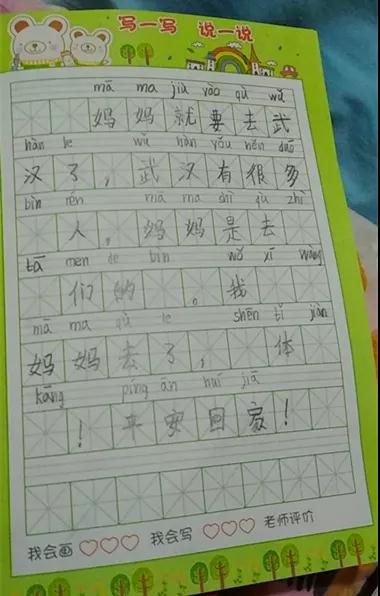 写一写 说一说
mā ma jiù yào qù wǔ
妈妈就要去武
hàn le wǔ hàn yǒu hěn duō
汉了，武汉有很多
bìn rén mā ma shì qù zhì
人，妈妈是去
tā men de bìn wǒ xī wàng
们的。我
mā ma qù le shēn tǐ jiàn
妈妈去了，体
kāng píng ān huí jiā
！平安回家！
我会画 我会写 老师评价